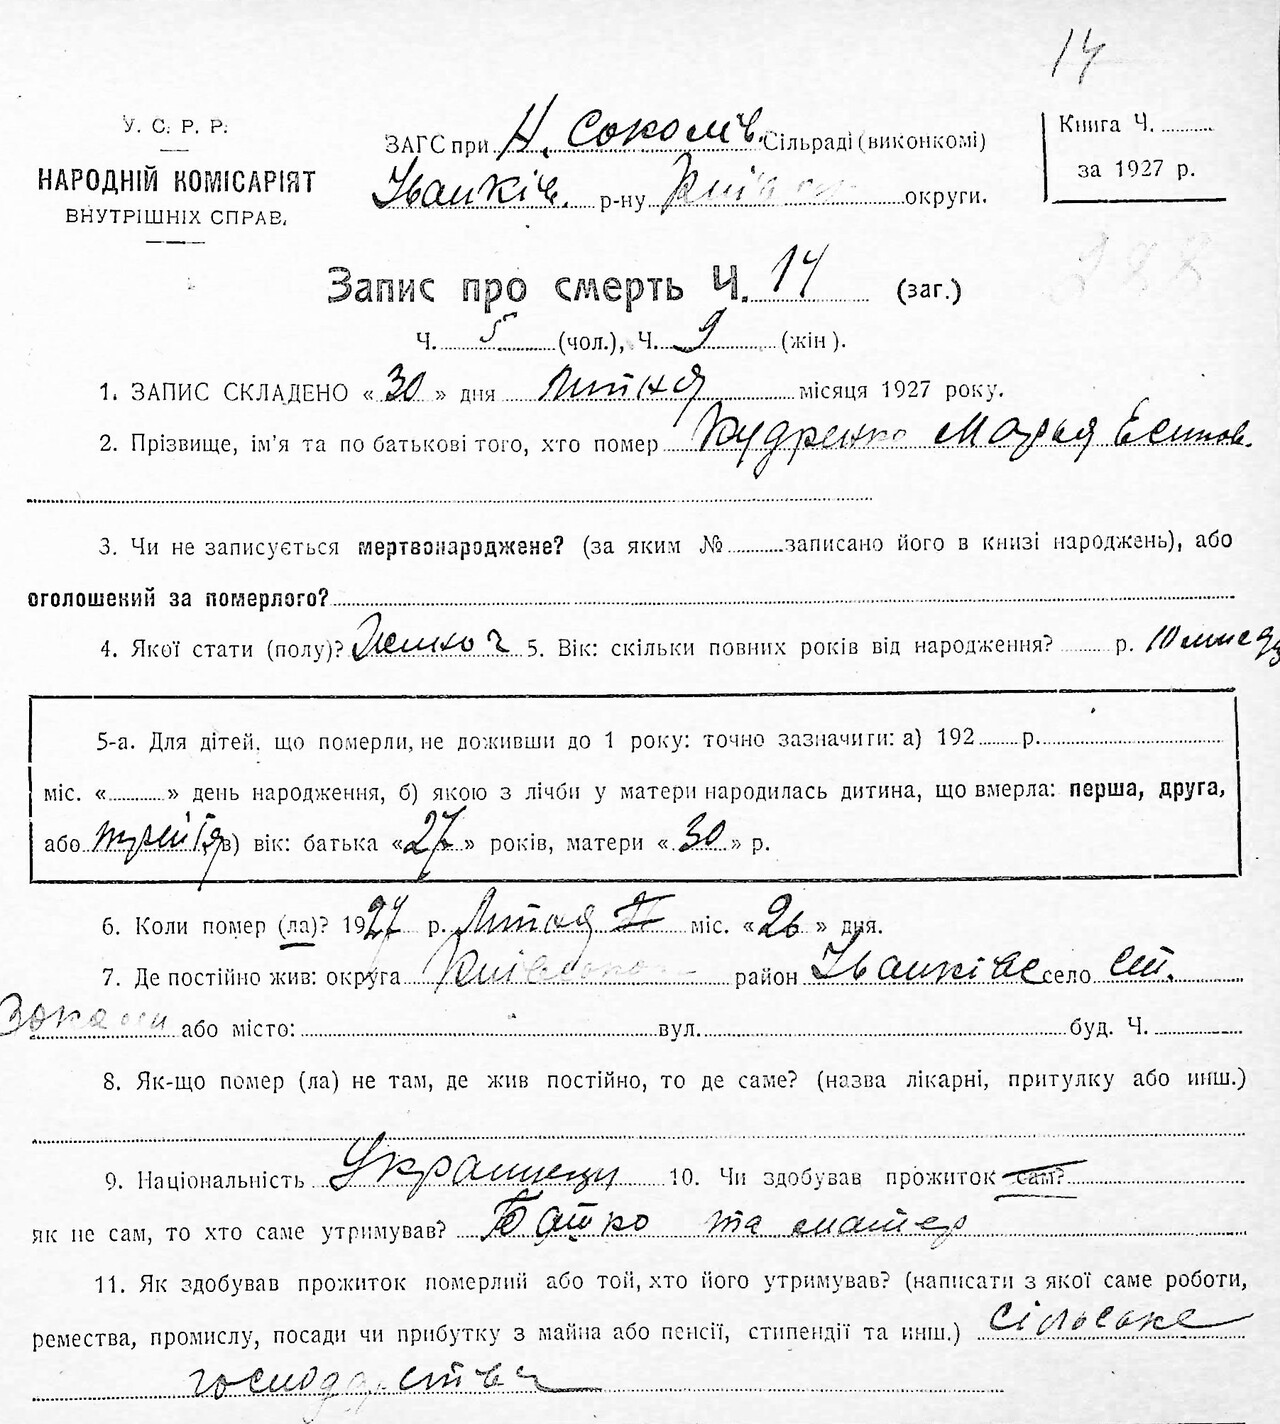 14
У. С. Р. Р.
НАРОДНІЙ КОМІСАРІЯТ
ВНУТРІШНІХ СПРАВ.
ЗАГС при Н. Соколів. Сільраді (виконкомі)
Іванків. р-ну Київськ округи.
Книга Ч. ..........
за 1927 р.
Запис про смерть Ч. 14 (заг.)
Ч. 5 (чол.), Ч. 9 (жін).
1. ЗАПИС СКЛАДЕНО « 30 » дня Липня місяця 1927 року.
2. Прізвище, ім'я та по батькові того, хто помер Кудренко Марья Есипов.
3. Чи не записується мертвонароджене? (за яким № .......... записано його в книзі народжень), або
оголошений за померлого?
4. Якої стати (полу)? 5. Вік: скільки повних років від народження? ........ р. 10
5-а. Для дітей, що померли, не доживши до 1 року: точно зазначити: а) 192........р.
міс. «..........» день народження, б) якою з лічби у матери народилась дитина, що вмерла: перша, друга,
або третя в) вік: батька «27» років, матери «30» р.
6. Коли помер (ла)? 1927 р. Липня міс. «26» дня.
7. Де постійно жив: округа Київська район Іванківс село Ст.
або місто: вул. буд. Ч.
8. Як-що помер (ла) не там, де жив постійно, то де саме? (назва лікарні, притулку або инш.)
9. Національність Українци 10. Чи здобував прожиток сам?
як не сам, то хто саме утримував? Батько та матер
11. Як здобував прожиток померлий або той, хто його утримував? (написати з якої саме роботи,
ремества, промислу, посади чи прибутку з майна або пенсії, стипендії та инш.) сільське
господарство